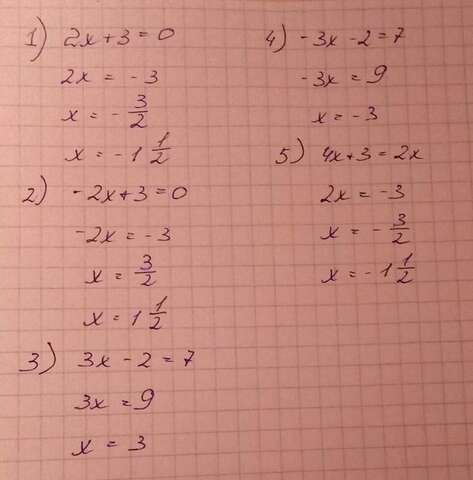 1) 2x+3=0
2x = -3
x = - 3/2
x = -1 1/2
2) -2x+3=0
-2x = -3
x = 3/2
x = 1 1/2
3) 3x - 2 = 7
3x = 9
x = 3
4) -3x - 2 = 7
-3x = 9
x = -3
5) 4x+3 = 2x
2x = -3
x = - 3/2
x = -1 1/2